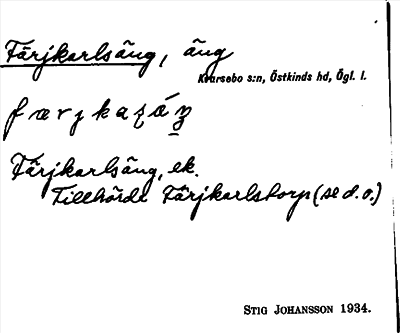 Färjkarlsäng, äng
Kvarsebo s:n, Östkinds hd, Ögl. l.
Färjkarlsäng, ek.
Tillhörde Färjkarlstorp (se d. o.)
STIG JOHANSSON 1934.